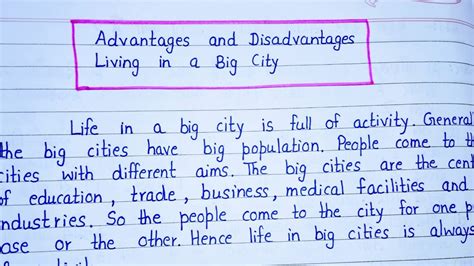 Advantages and Disadvantages
Living in a Big City
Life in a big city is full of activity. General
the big cities have big population. People come to th
cities with different aims. The big cities are the cent
of education, trade, business, medical facilities and
industries. So the people come to the city for one p
ose or the other. Hence life in big cities is always